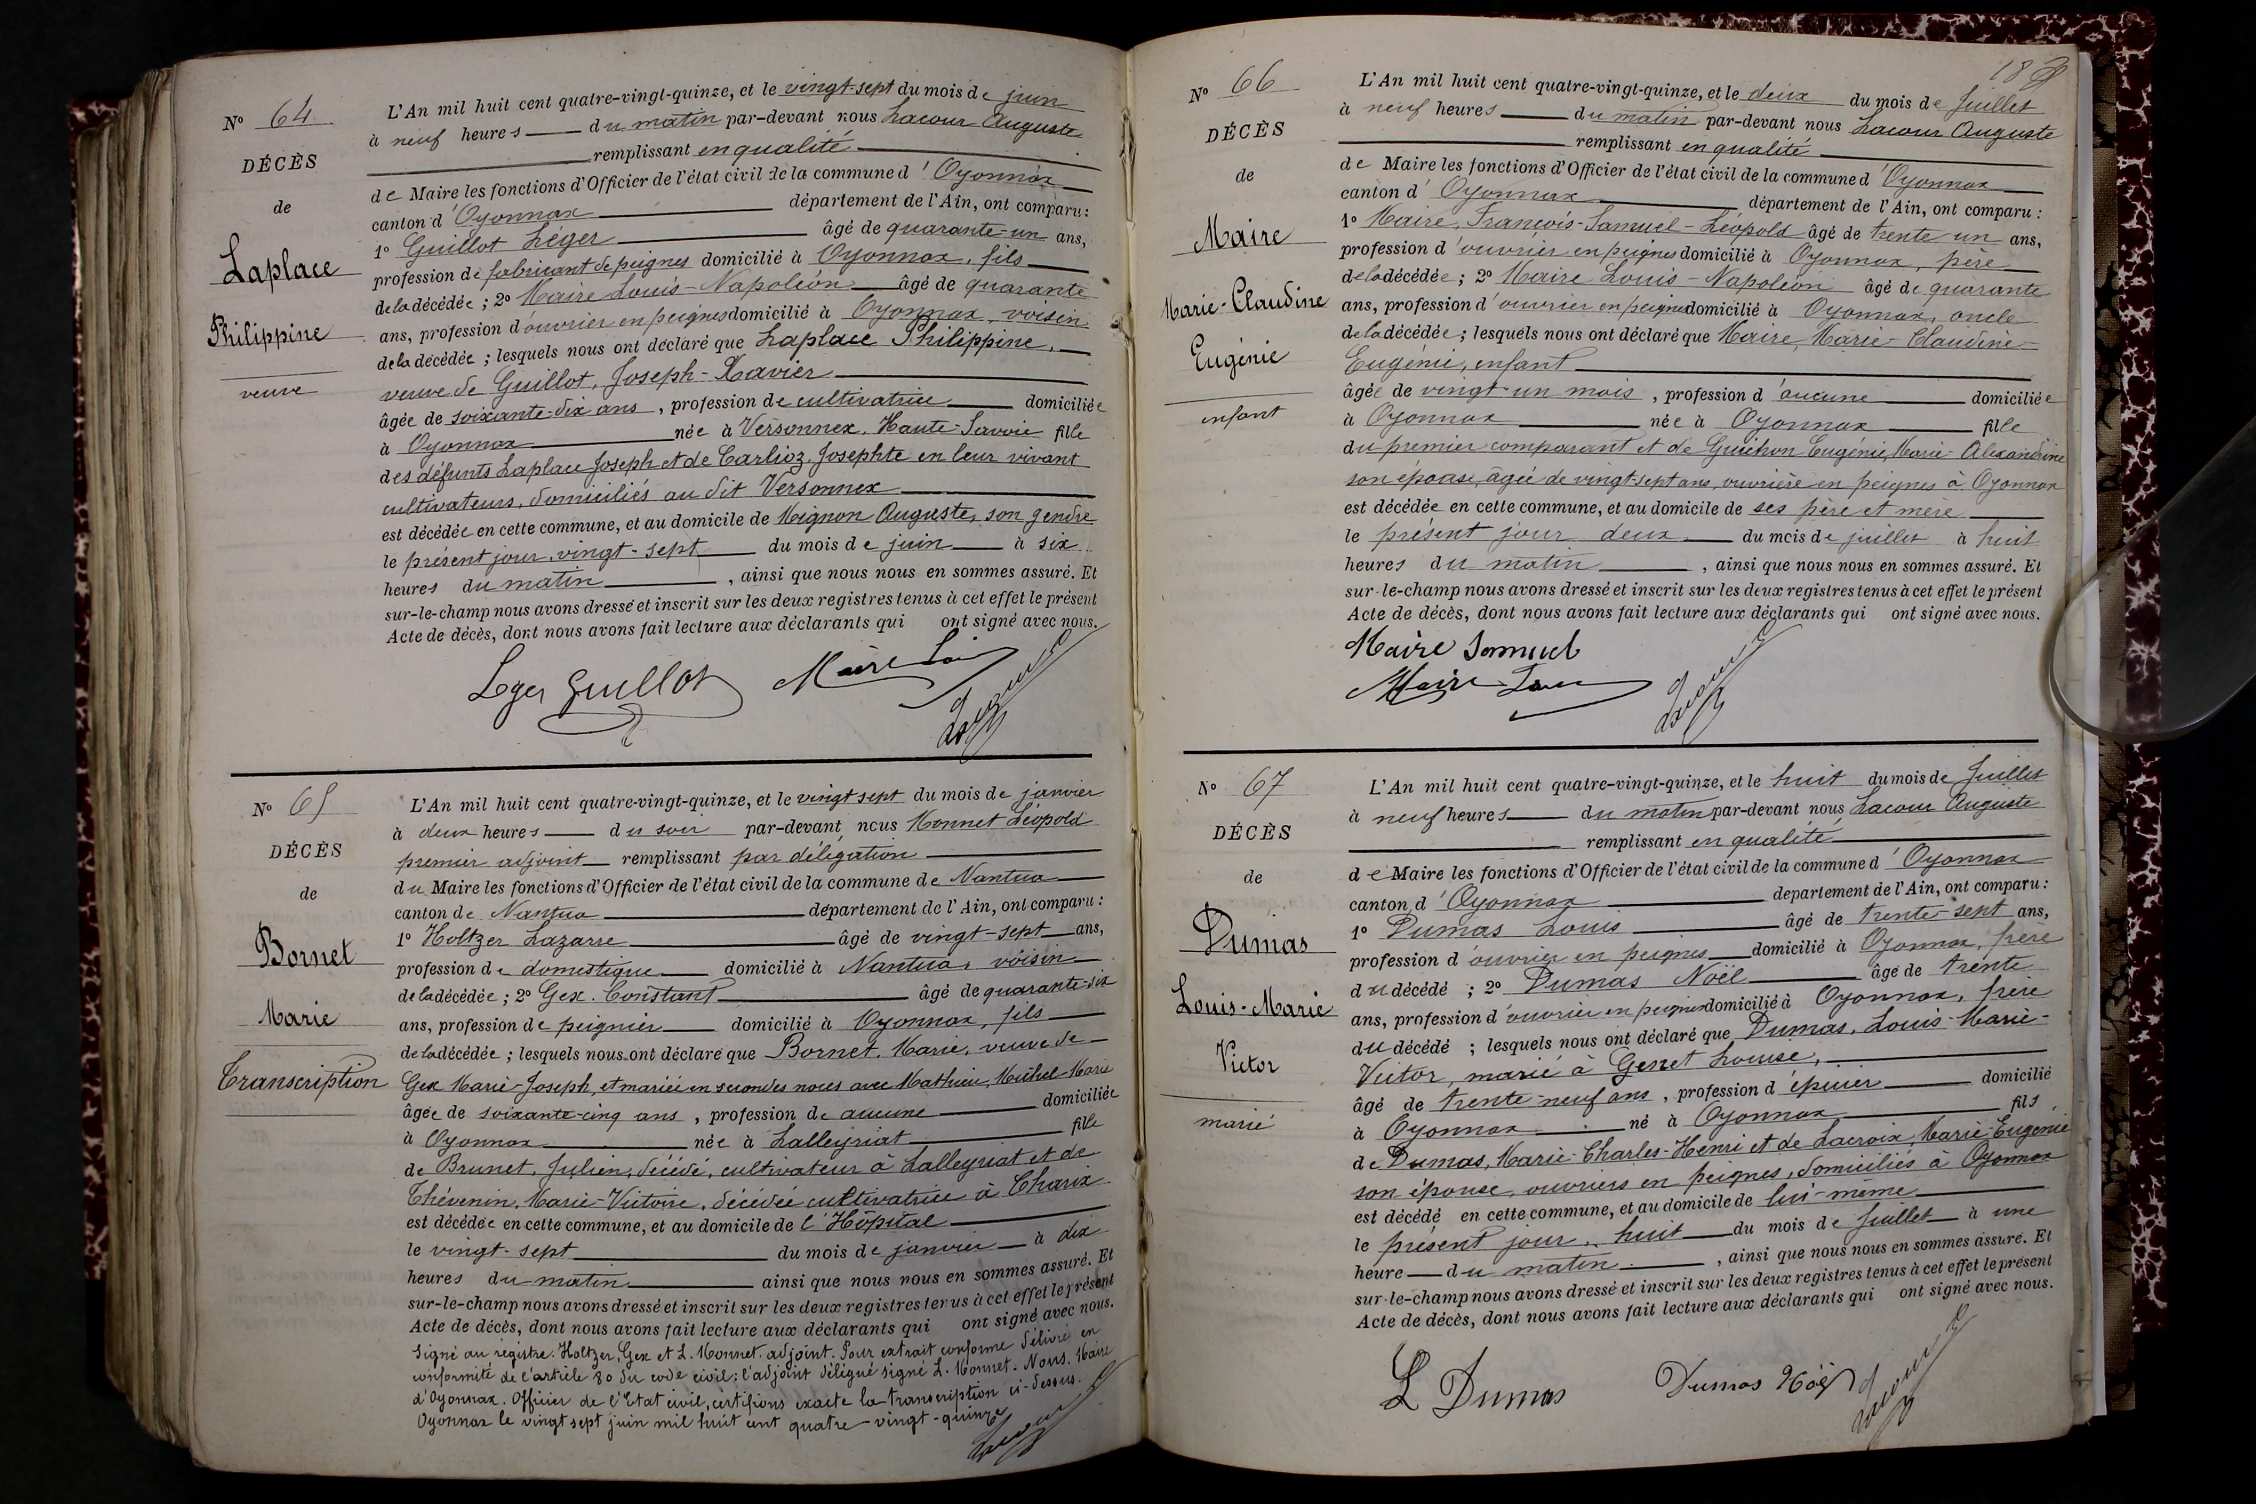 Nº 64
DÉCÈS
de
Laplace
Philippine
veuve
L'An mil huit cent quatre-vingt-quinze, et le vingt-sept du mois de juin
à neuf heures du matin par-devant nous Lacour Auguste
remplissant en qualité
de Maire les fonctions d'Officier de l'état civil de la commune d'Oyonnax
canton d'Oyonnax département de l'Ain, ont comparu :
1º Guillot Léger âgé de quarante-un ans,
profession de fabricant de peignes domicilié à Oyonnax, fils
de la décédée ; 2º Maire Louis-Napoléon âgé de quarante
ans, profession d'ouvrier en peignes domicilié à Oyonnax, voisin
de la décédée ; lesquels nous ont déclaré que Laplace Philippine,
veuve de Guillot, Joseph-Xavier
âgée de soixante-dix ans, profession de cultivatrice domiciliée
à Oyonnax née à Versonnex, Haute-Savoie fille
des défunts Laplace Joseph et de Carlioz, Josephte en leur vivant
cultivateurs, domiciliés au dit Versonnex
est décédée en cette commune, et au domicile de Mignon Auguste, son gendre
le présent jour, vingt-sept du mois de juin à six
heures du matin, ainsi que nous nous en sommes assuré. Et
sur-le-champ nous avons dressé et inscrit sur les deux registres tenus à cet effet le présent
Acte de décès, dont nous avons fait lecture aux déclarants qui ont signé avec nous.
Leger Guillot Maire Loui Lacour
Nº 65
DÉCÈS
de
Bornet
Marie
Transcription
L'An mil huit cent quatre-vingt-quinze, et le vingt sept du mois de janvier
à deux heures du soir par-devant nous Monnet Léopold
premier adjoint remplissant par délégation
du Maire les fonctions d'Officier de l'état civil de la commune de Nantua
canton de Nantua département de l'Ain, ont comparu :
1º Holtzer Lazarre âgé de vingt-sept ans,
profession de domestique domicilié à Nantua, voisin
de la décédée ; 2º Gex. Constant âgé de quarante-six
ans, profession de peignier domicilié à Oyonnax, fils
de la décédée ; lesquels nous ont déclaré que Bornet, Marie, veuve de
Gex Marie-Joseph, et mariée en secondes noces avec Mathieu, Michel-Marie
âgée de soixante-cinq ans, profession de aucune domiciliée
à Oyonnax née à Lalleyriat fille
de Brunet, Julien, décédé, cultivateur à Lalleyriat et de
Thévenin, Marie-Victoire, décédée cultivatrice à Charix
est décédée en cette commune, et au domicile de l'Hôpital
le vingt-sept du mois de janvier à dix
heures du matin ainsi que nous nous en sommes assuré. Et
sur-le-champ nous avons dressé et inscrit sur les deux registres tenus à cet effet le présent
Acte de décès, dont nous avons fait lecture aux déclarants qui ont signé avec nous.
Signé au registre : Holtzer, Gex et L. Monnet, adjoint. Pour extrait conforme délivré en
conformité de l'article 80 du code civil : l'adjoint délégué signé L. Monnet. Nous, Maire
d'Oyonnax. Officier de l'Etat civil, certifions exacte la transcription ci-dessus.
Oyonnax le vingt sept juin mil huit cent quatre-vingt-quinze
Lacour
18
Nº 66
DÉCÈS
de
Maire
Marie-Claudine
Eugénie
enfant
L'An mil huit cent quatre-vingt-quinze, et le deux du mois de Juillet
à neuf heures du matin par-devant nous Lacour Auguste
remplissant en qualité
de Maire les fonctions d'Officier de l'état civil de la commune d'Oyonnax
canton d'Oyonnax département de l'Ain, ont comparu :
1º Maire, François-Samuel-Léopold âgé de trente un ans,
profession d'ouvrier en peignes domicilié à Oyonnax, père
de la décédée ; 2º Maire Louis-Napoléon âgé de quarante
ans, profession d'ouvrier en peignes domicilié à Oyonnax, oncle
de la décédée ; lesquels nous ont déclaré que Maire, Marie-Claudine-
Eugénie, enfant
âgée de vingt-un mois, profession d'aucune domiciliée
à Oyonnax née à Oyonnax fille
du premier comparant et de Guichon Eugénie, Marie-Alexandrine
son épouse, âgée de vingt-sept ans, ouvrière en peignes à Oyonnax
est décédée en cette commune, et au domicile de ses père et mère
le présent jour deux du mois de juillet à huit
heures du matin, ainsi que nous nous en sommes assuré. Et
sur-le-champ nous avons dressé et inscrit sur les deux registres tenus à cet effet le présent
Acte de décès, dont nous avons fait lecture aux déclarants qui ont signé avec nous.
Maire Samuel
Maire Loui Lacour
Nº 67
DÉCÈS
de
Dumas
Louis-Marie
Victor
marié
L'An mil huit cent quatre-vingt-quinze, et le huit du mois de Juillet
à neuf heures du matin par-devant nous Lacour Auguste
remplissant en qualité
de Maire les fonctions d'Officier de l'état civil de la commune d'Oyonnax
canton d'Oyonnax département de l'Ain, ont comparu :
1º Dumas Louis âgé de trente-sept ans,
profession d'ouvrier en peignes domicilié à Oyonnax, frère
du décédé ; 2º Dumas Noël âgé de trente
ans, profession d'ouvrier en peignes domicilié à Oyonnax, frère
du décédé ; lesquels nous ont déclaré que Dumas, Louis-Marie-
Victor, marié à Genet Louise,
âgé de trente-neuf ans, profession d'épicier domicilié
à Oyonnax né à Oyonnax fils
de Dumas, Marie-Charles-Henri et de Lacroix, Marie-Eugénie
son épouse, ouvriers en peignes, domiciliés à Oyonnax
est décédé en cette commune, et au domicile de lui-même
le présent jour, huit du mois de Juillet à une
heure du matin, ainsi que nous nous en sommes assuré. Et
sur-le-champ nous avons dressé et inscrit sur les deux registres tenus à cet effet le présent
Acte de décès, dont nous avons fait lecture aux déclarants qui ont signé avec nous.
L Dumas Dumas Noël Lacour